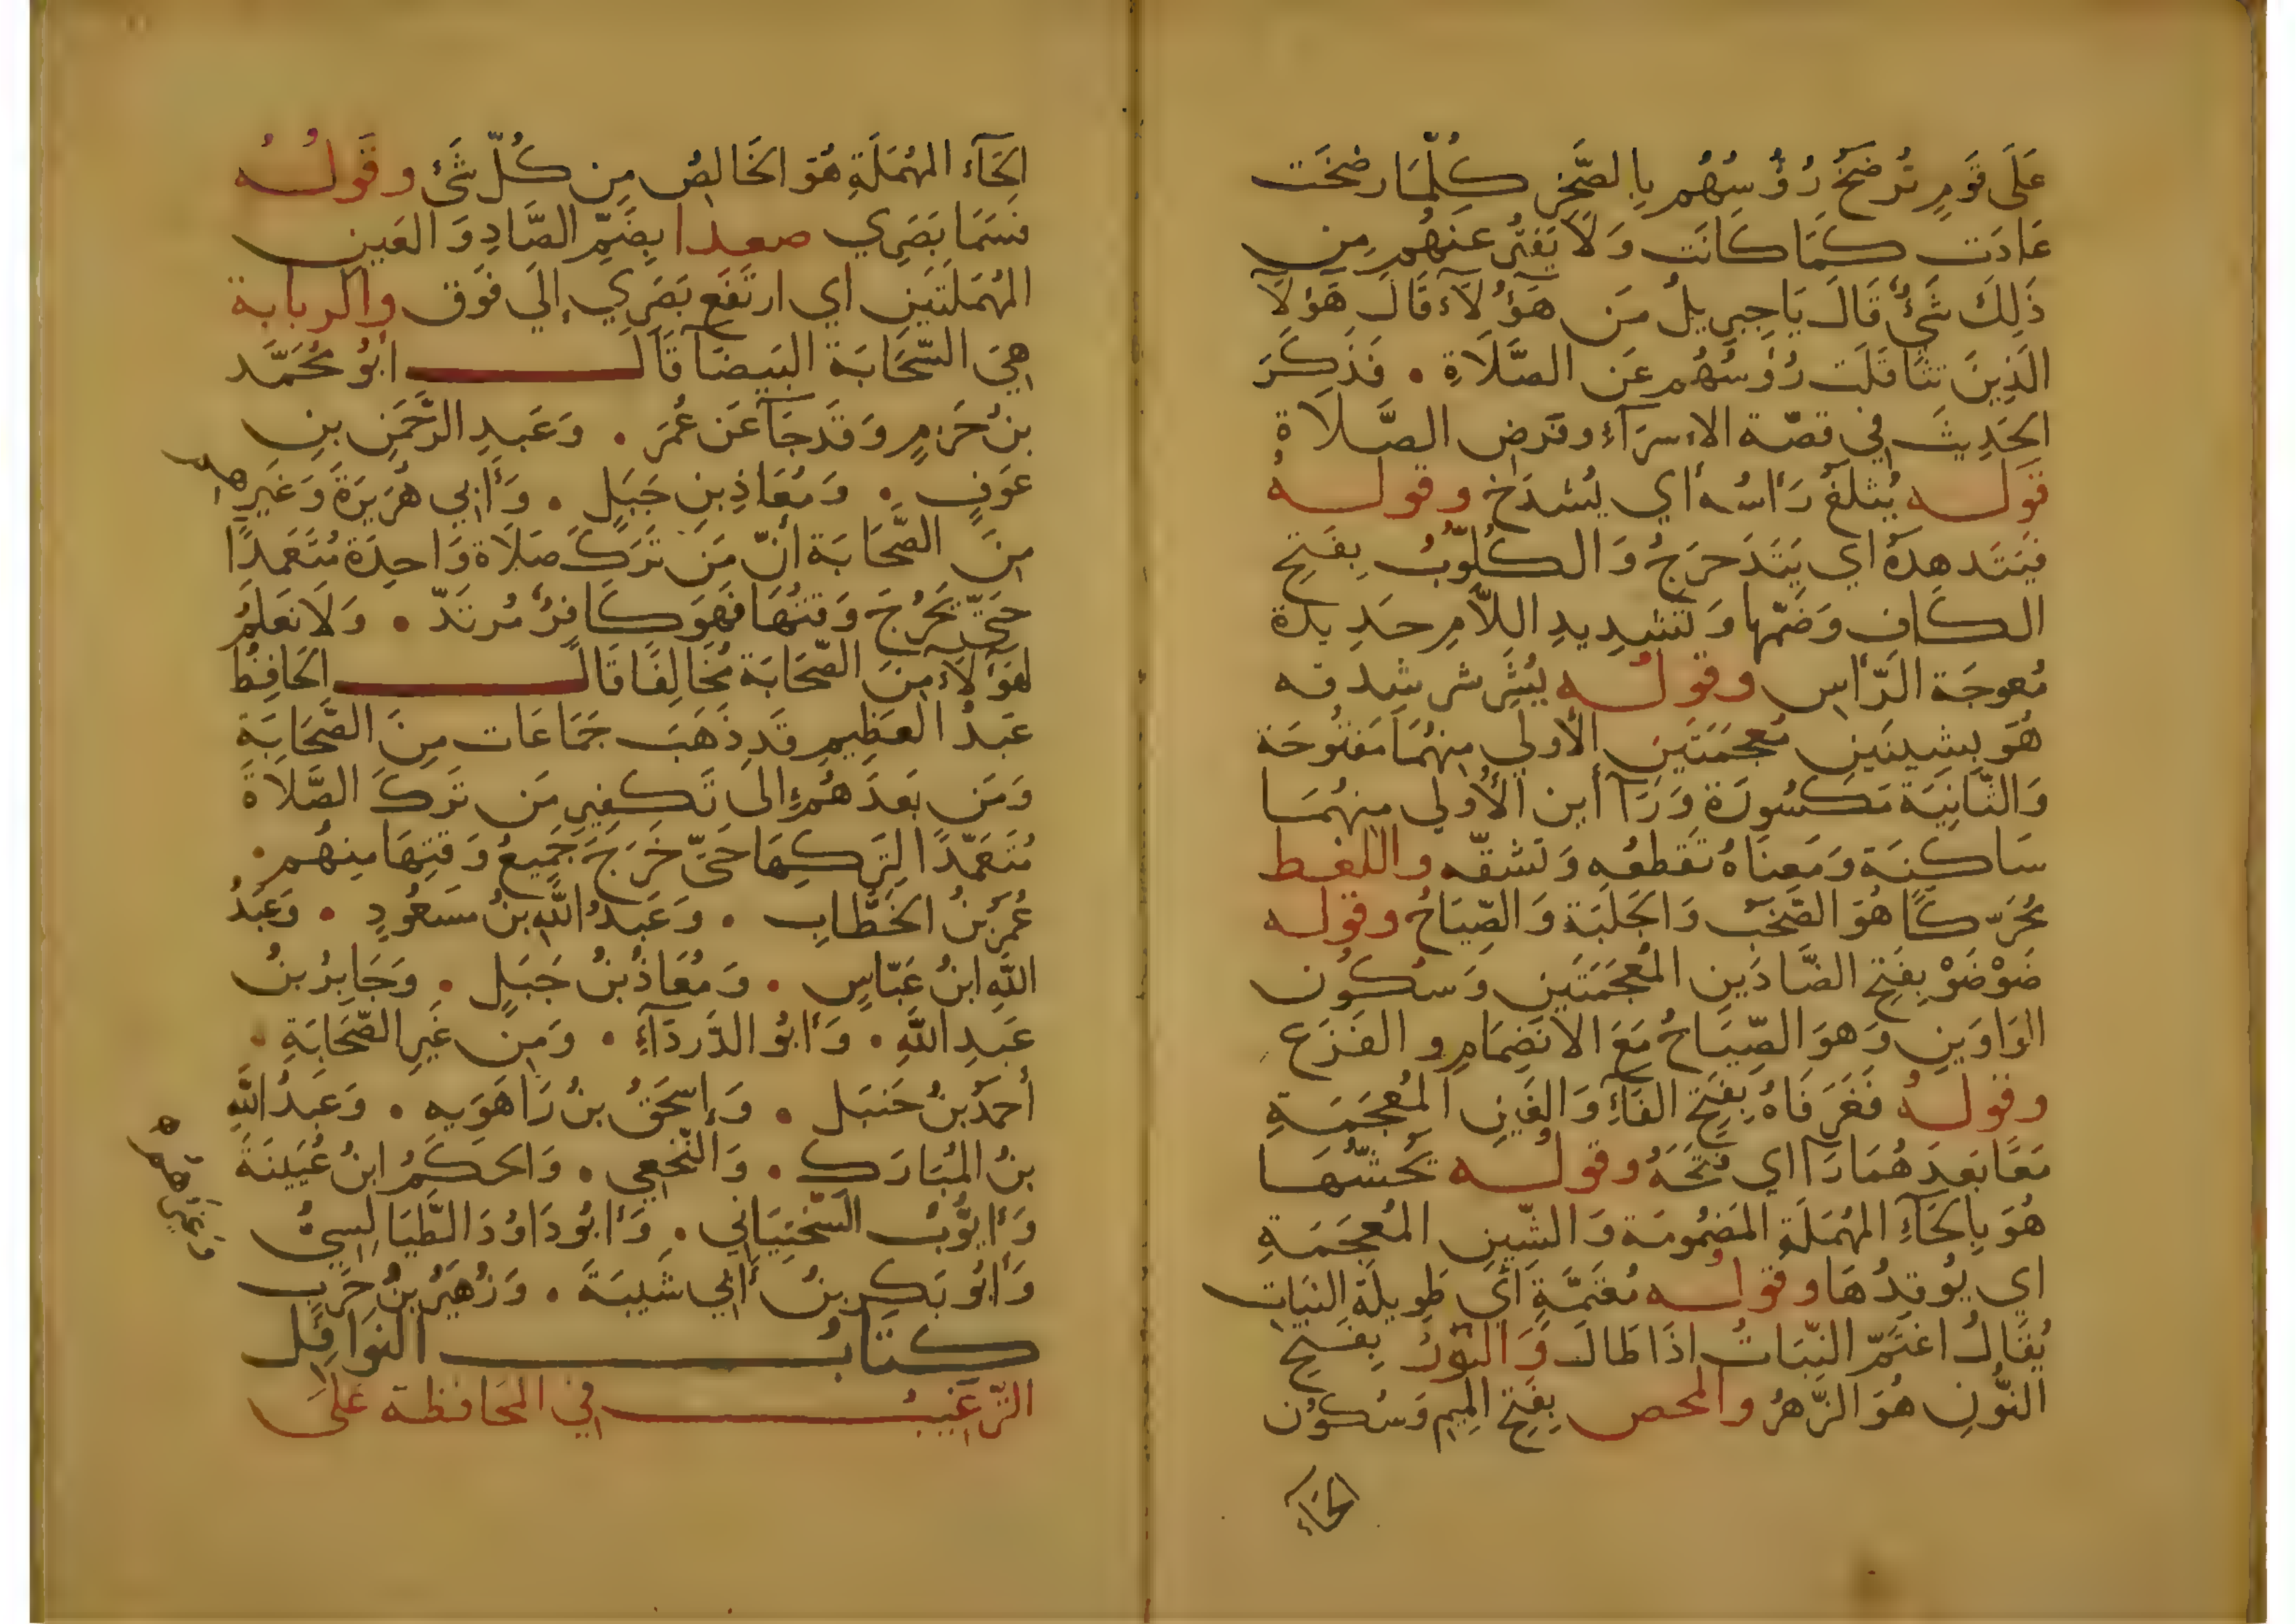 عَلَى قَومٍ تُرضَخُ رُؤُسُهُم بِالصَّخرِ كُلَّمَا رضخَت
عَادَت كَمَا كَانَت وَلَا يَفتُر عَنهُم مِن
ذَلِكَ شَيءٌ قَالَ يَا جِبرِيلُ مَن هَؤُلَآء قَالَ هَؤلَآ
الَذِينَ تَثَاقَلَت رُؤسُهُم عَن الصَّلَاةِ . فَذَكَرَ
الحَدِيثَ فِي قصّة الاسرَآءِ وفَرض الصَّلَاة
قَولُه يُثلَغُ رَأسُه أي يُشدَخ وقولُهُ
فَيَتَدهدَهُ اي يَتَدَحرَجُ وَالكلُّوبُ بِفَتحِ
الكَافِ وَضَمّها وَتَشدِيدِ اللَّامِ حَدِيدة
مُعوجَة الرَّاسِ وقَولُه يُشَرشر شِدقه
هُوَ بِشِينَينِ مُعجَمَتَينِ الأولي مِنهُمَا مَفتُوحَة
وَالثَّانِيَة مَكسُورَة وَرَآأين الأُولي مِنهُمَا
سَاكِنَة وَمَعنَاهُ تَقطعُه وَتَشقّه واللغط
مُحَرّكًا هُوَ الصَّخَبُ وَالجَلَبَة وَالصِّيَاحُ وقوله
ضَوْضَوْ بِفَتحِ الضَّادَينِ المُعجَمَتَينِ وَسُكُون
الوَاوَينِ وَهوَ الصِّيَاحُ مَعَ الانضِمَامِ و الفَزَع
وقولُهُ فَغَرَ فَاهُ بِفَتحِ الفَآءِ وَالغَينِ المُعجَمَةِ
مَعًا بَعدَهُمَا رَآ اي فَتَحَهُ وقولُه يَحُشُّهَا
هُوَ بِالحَآءِ المُهمَلَةِ المَضمُومَة وَالشِّينِ المُعجَمَةِ
اي يُوقدُهَا وقولُه مُعتَمَّةٍ أَي طَوِيلَة النَبَاتِ
يُقَالُ اعتَمّ النّبَاتُ اذَا طَالَ وَالنَّورُ بِفَتحِ
النُّونِ هُوَ الزَّهرُ والمحض بِفَتحِ المِيمِ وَسُكُون
الحَآءِ
الحَآء المُهمَلَةِ هُوَ الخَالِصُ مِن كُلّ شَئ وقَولُهُ
فَسَمَا بَصَرِي صعدا بِضَمِّ الصَّادِ وَالعَينِ
المُهمَلَتَينِ اي ارتَفَع بَصَرِي إلَي فَوق والربابة
هِيَ السَّحَابَة البَيضَا قَالَ ابُو مُحَمَّد
بنُ حَزمٍ وَقَد جَآ عَن عُمَرَ . وَعَبدِ الرَّحمَنِ بنِ
عَوفٍ . وَمُعَاذِ بنِ جَبَلٍ . وَأَبِي هُرَيرَةَ وَغَيرِهِم
مِنَ الصَّحَابَة أنّ مَن تَرَكَ صَلَاة وَاحِدَة مُتَعَمِدًا
حَتَّى يَخرُجَ وَقتُهَا فَهوَ كَافِرٌ مُرتَدّ . وَلَا نَعلَمُ
لهَؤلَاءِ مِنَ الصَّحَابَة مُخَالِفًا قَالَ الحَافِظ
عَبدُ العَظِيمِ قَد ذَهَبَ جَمَاعَات مِنَ الصَّحَابَةِ
وَمَن بَعدَهُم إلَى تَكفِيرِ مَن تَركَ الصَّلَاةَ
مُتَعَمِّدًا لِتَركِهَا حَتَّى خَرَجَ جَمِيعُ وَقتِهَا مِنهُم .
عُمَرُ بنُ الخَطَّابِ . وَعَبدُ اللَّهِ بنُ مَسعُودٍ . وَعَبدُ
اللَّهِ ابنُ عَبّاسٍ . وَمُعَاذُ بنُ جَبَلٍ . وَجَابِرُ بنُ
عَبدِ اللَّهِ . وَأبُو الدَّردَآءِ . وَمِن غَيرِ الصّحَابَةِ .
أحمَدُ بنُ حَنبَل . وَإسحَقُ بنُ رَاهَوَيه . وَعَبدُ اللَّهِ
بنُ المُبَارَك . وَالنّخَعِي . وَالحَكَمُ ابنُ عُيَينَةَ
وَأيُّوبُ السّختِيَانِي . وَأبُو دَاوُدَ الطَّيَالِسِيُّ
وَأبُو بَكرِ بنُ أبِي شَيبَةَ . وَزُهَيرُ بنُ حَربٍ
وَغَيرُهُم ه
كتابُ النوَافِل
التَّرغِيبُ فِي المحَافظة عَلَى